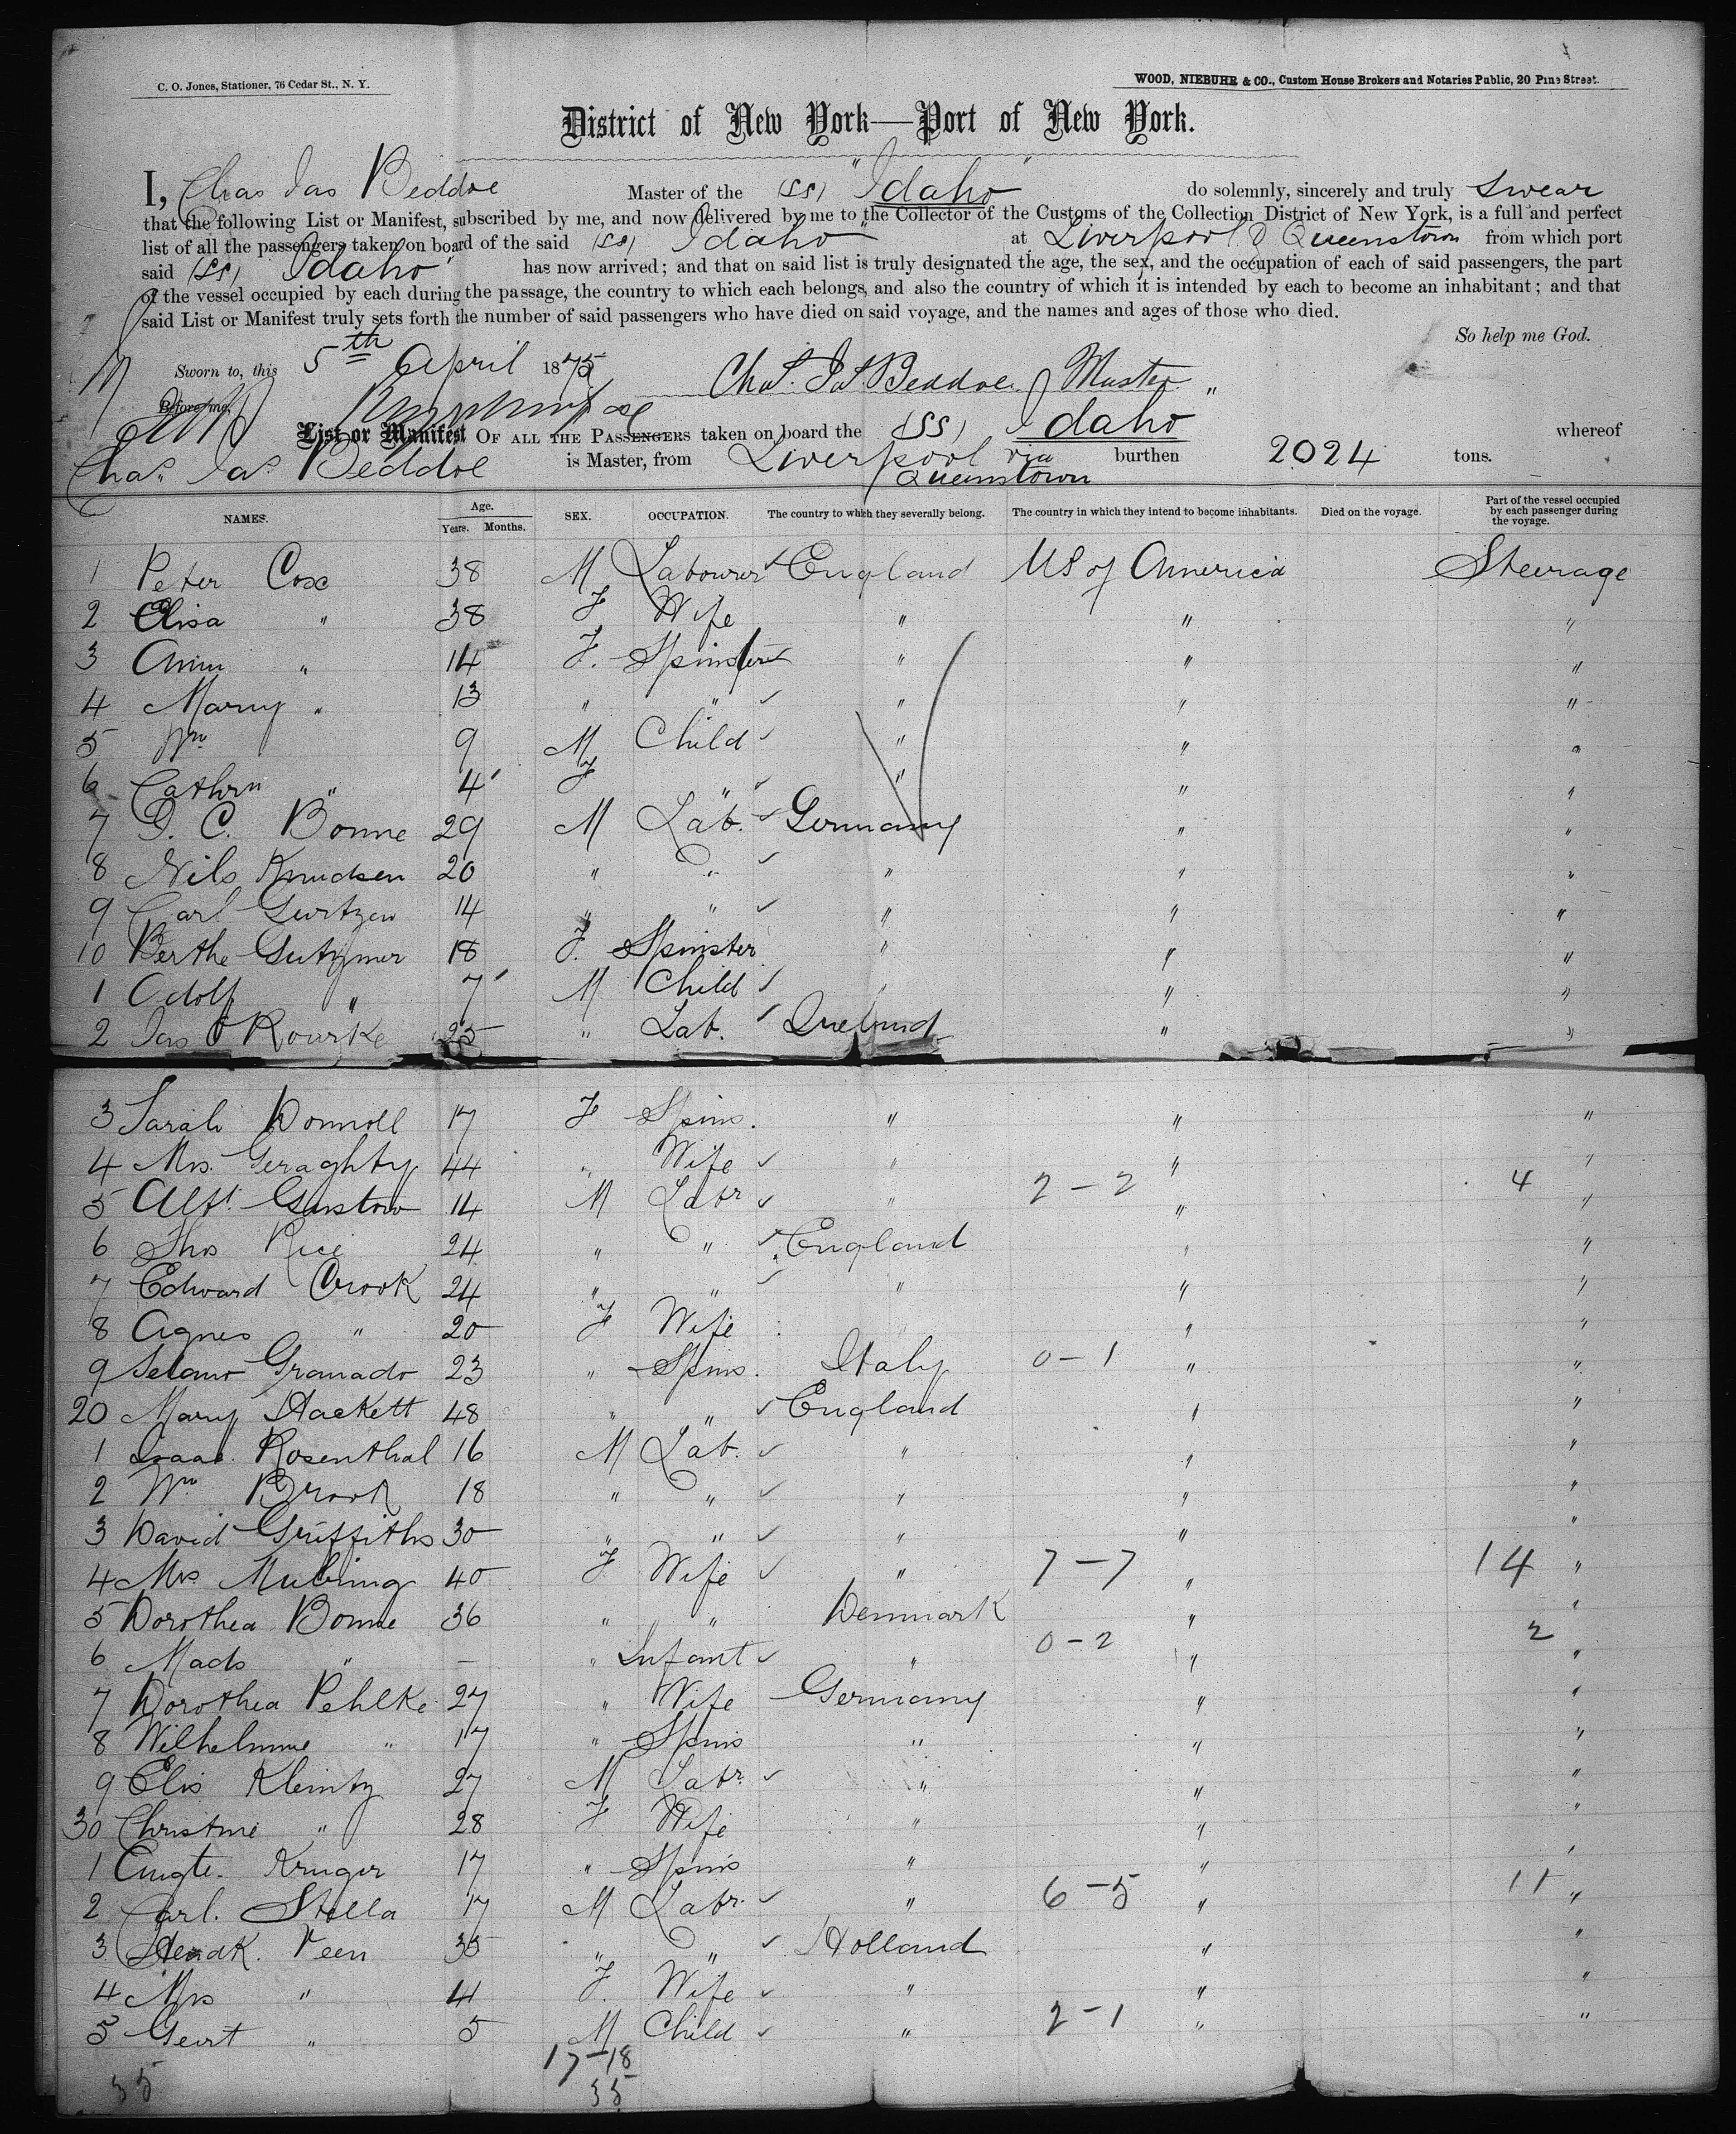 C. O. Jones, Stationer, 76 Cedar St., N. Y.
WOOD, NIEBUHR & CO., Custom House Brokers and Notaries Public, 20 Pine Street.
District of New York—Port of New York.
I, Chas Jas Beddoe Master of the (SS) "Idaho" do solemnly, sincerely and truly swear
that the following List or Manifest, subscribed by me, and now delivered by me to the Collector of the Customs of the Collection District of New York, is a full and perfect
list of all the passengers taken on board of the said (SS) Idaho" at Liverpool & Queenstown from which port
said (SS) Idaho" has now arrived; and that on said list is truly designated the age, the sex, and the occupation of each of said passengers, the part
of the vessel occupied by each during the passage, the country to which each belongs, and also the country of which it is intended by each to become an inhabitant; and that
said List or Manifest truly sets forth the number of said passengers who have died on said voyage, and the names and ages of those who died.
So help me God.
Sworn to, this 5th April 1875 Chas. Jas. Beddoe Master "
Before me,
List or Manifest OF ALL THE PASSENGERS taken on board the (SS) Idaho whereof
Chas. Jas. Beddoe is Master, from Liverpool via Queenstown burthen 2024 tons.
NAMES. Age. Years. Months. SEX. OCCUPATION. The country to which they severally belong. The country in which they intend to become inhabitants. Died on the voyage. Part of the vessel occupied by each passenger during the voyage.
1 Peter Cox 38 M Labourer England US of America Steerage
2 Elisa " 38 F Wife " " "
3 Ann " 14 F. Spinster " " "
4 Marry " 13 " " " " "
5 Wm 9 M Child " " "
6 Cathrn " 4 F " " " "
7 D. C. Bonne 29 M Lab. Germany " "
8 Nils Knudsen 20 " " " " "
9 Carl 14 " " " " "
10 Berthe 18 F. Spinster " " "
1 Adolf " 7 M Child " " "
2 Jas O'Rourke 25 " Lab. Ireland " "
3 Sarah Donnoll 17 F Spins. " " "
4 Mrs. Geraghty 44 " Wife " " "
2 - 2 4
5 Alft. Gustow 14 M Labr " " "
6 Thos Rice 24 " " England " "
7 Edward Crook 24 " " " " "
8 Agnes " 20 F Wife " "
9 Granado 23 " Spins. Italy 0 - 1 " "
20 Mary Hackett 48 " " England " "
1 Isaac. Rosenthal 16 M Lab. " " "
2 Wm Brook 18 " " " " "
3 David Griffiths 30 " " " " "
4 Mrs. 40 F Wife " 7 - 7 " 14 "
5 Dorothea Bonne 36 " " Denmark " "
0 - 2 2
6 Mads " — " Infant " " "
7 Dorothea Pehlke 27 " Wife Germany " "
8 Wilhelmine " 17 " Spins " " "
9 Elis Kleintz 27 M Labr. " " "
30 Christine " 28 F Wife " " "
1 Kruger 17 " Spins " " "
2 Carl. Stella 17 M Labr. " 6 - 5 " 11 "
3 Hendk. Veen 35 " " Holland " "
4 Mrs " 41 F. Wife " " "
5 Geert " 5 M Child " 2 - 1 " "
17-18
35 35